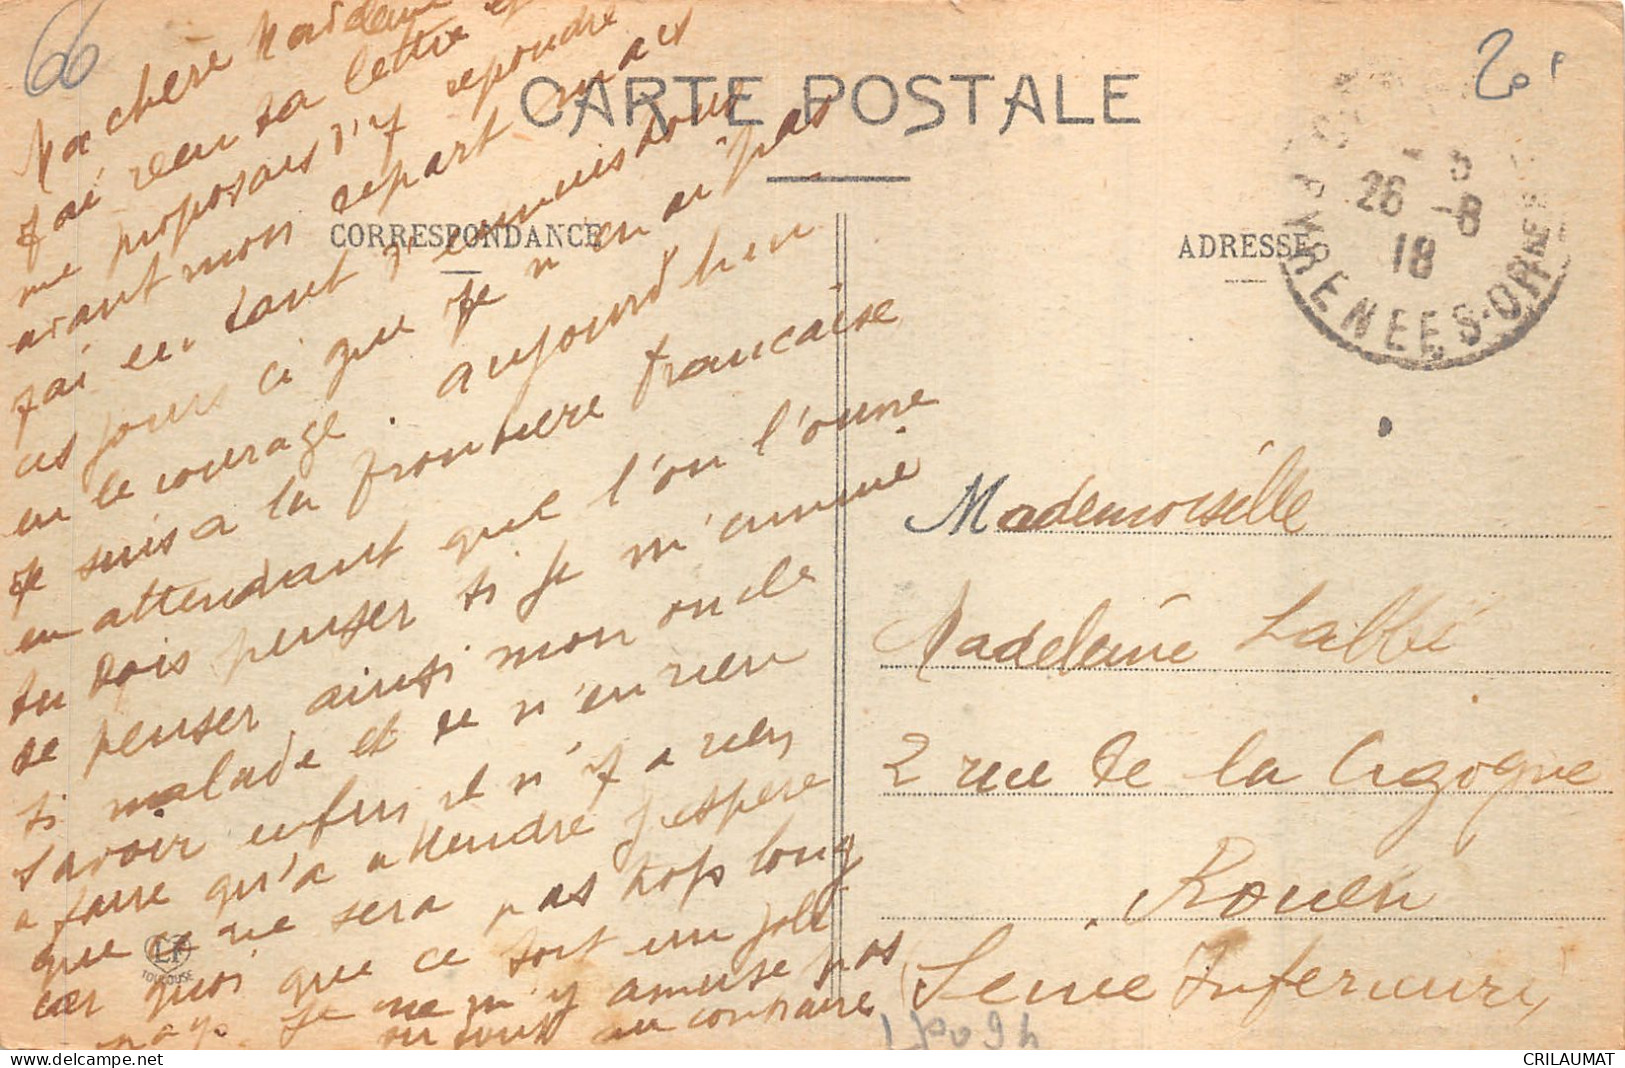 CARTE POSTALE
CORRESPONDANCE
ADRESSE
PYRENEES-ORIEN
26 -8
18
20f
Ma chère Madeleine
J'ai reçu ta lettre et
me proposais d'y repondre
avant mon depart mais
j'ai eu tant d'ennuis tous
ces jours ci que je n'en ai pas
eu le courage. aujourd'hui
Je suis a la frontiere francaise
en attendant que l'on l'ouvre
tu dois penser si je m'ennuie
de penser ainsi mon oncle
si malade et de n'en rien
savoir enfin il n'y a rien
a faire qu'a attendre j'espere
que ce ne sera pas trop long
car quoi que ce soit un joli
pays je ne m'y amuse pas
du tout au contraire
Mademoiselle
Madeleine Labbé
2 rue de la Cigogne
Rouen
(Seine Inferieure)
LF
TOULOUSE
CRILAUMAT